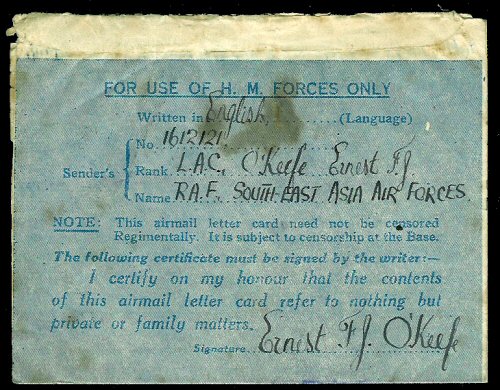 FOR USE OF H. M. FORCES ONLY
Written in English (Language)
No. 1612121
Sender's Rank L.A.C. O'Keefe Ernest F.J
Name R.A.F. SOUTH-EAST ASIA AIR FORCES.
NOTE: This airmail letter card need not be censored
Regimentally. It is subject to censorship at the Base.
The following certificate must be signed by the writer:—
I certify on my honour that the contents
of this airmail letter card refer to nothing but
private or family matters.
Signature Ernest F.J. O'Keefe